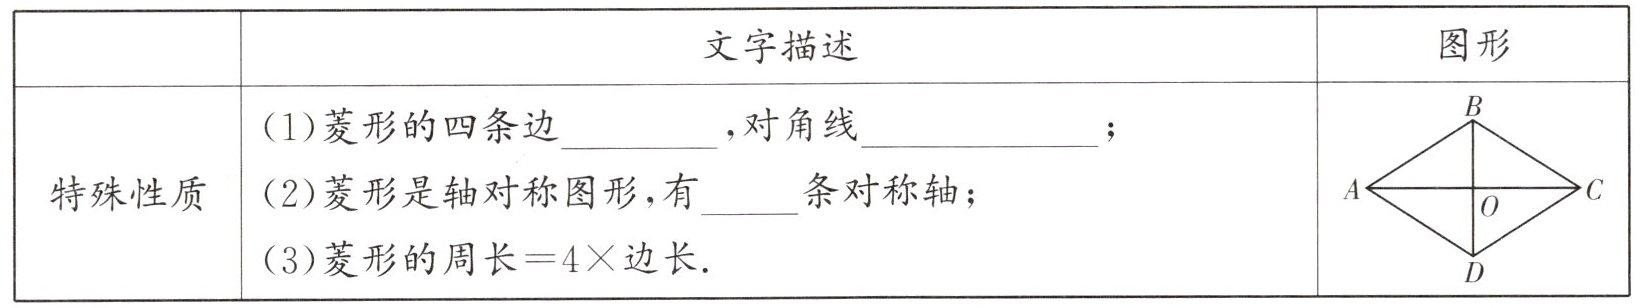 文字描述 图形
(1)菱形的四条边________,对角线____________;
特殊性质 (2)菱形是轴对称图形,有_____条对称轴;
(3)菱形的周长=4×边长.
B
A O C
D